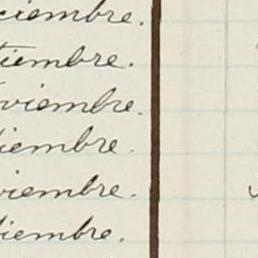 ciembre.
tiembre.
viembre.
tiembre.
viembre.
tiembre.